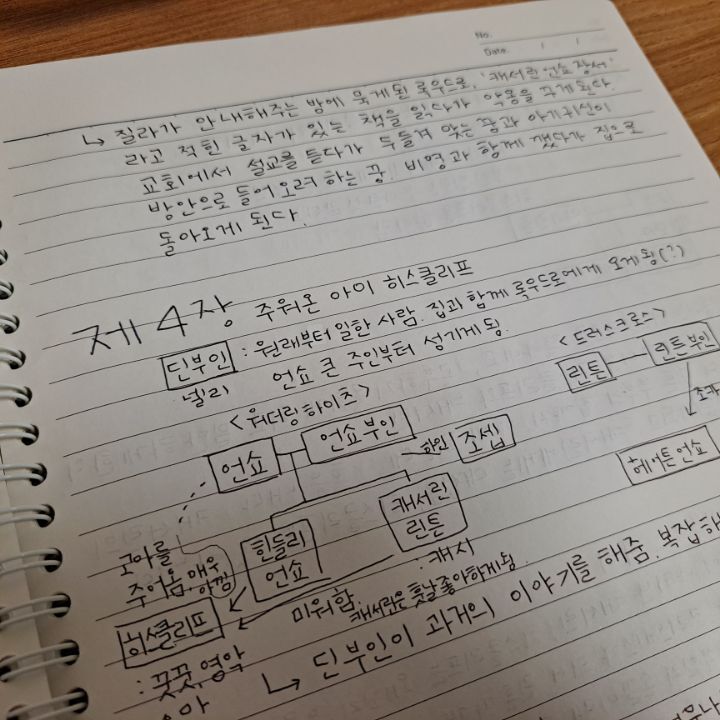 No.
Date. / /
↳ 질라가 안내해주는 방에 묵게된 록우드로, '캐서린 언쇼 장서'
라고 적힌 글자가 있는 책을 읽다가 악몽을 꾸게된다.
교회에서 설교를 듣다가 두들겨 맞는 꿈과 아기귀신이
방안으로 들어오려 하는 꿈. 비명과 함께 깼다가 집으로
돌아오게 된다.
제 4장 주워온 아이 히스클리프
딘부인 : 원래부터 일한 사람. 집과 함께 록우드로에게 오게됨(?)
넬리 언쇼 큰 주인부터 섬기게 됨.
<드러스크로스>
린튼 린튼부인
<워더링하이츠>
언쇼 언쇼부인 하인 조셉
헤어튼언쇼
힌들리
언쇼
캐서린
린튼
: 캐시
고아를
주어옴. 매우
아낌
미워함
캐서린은 훗날 좋아하게됨
히스클리프
: 꿋꿋, 영악
↳ 딘부인이 과거의 이야기를 해줌. 복잡해